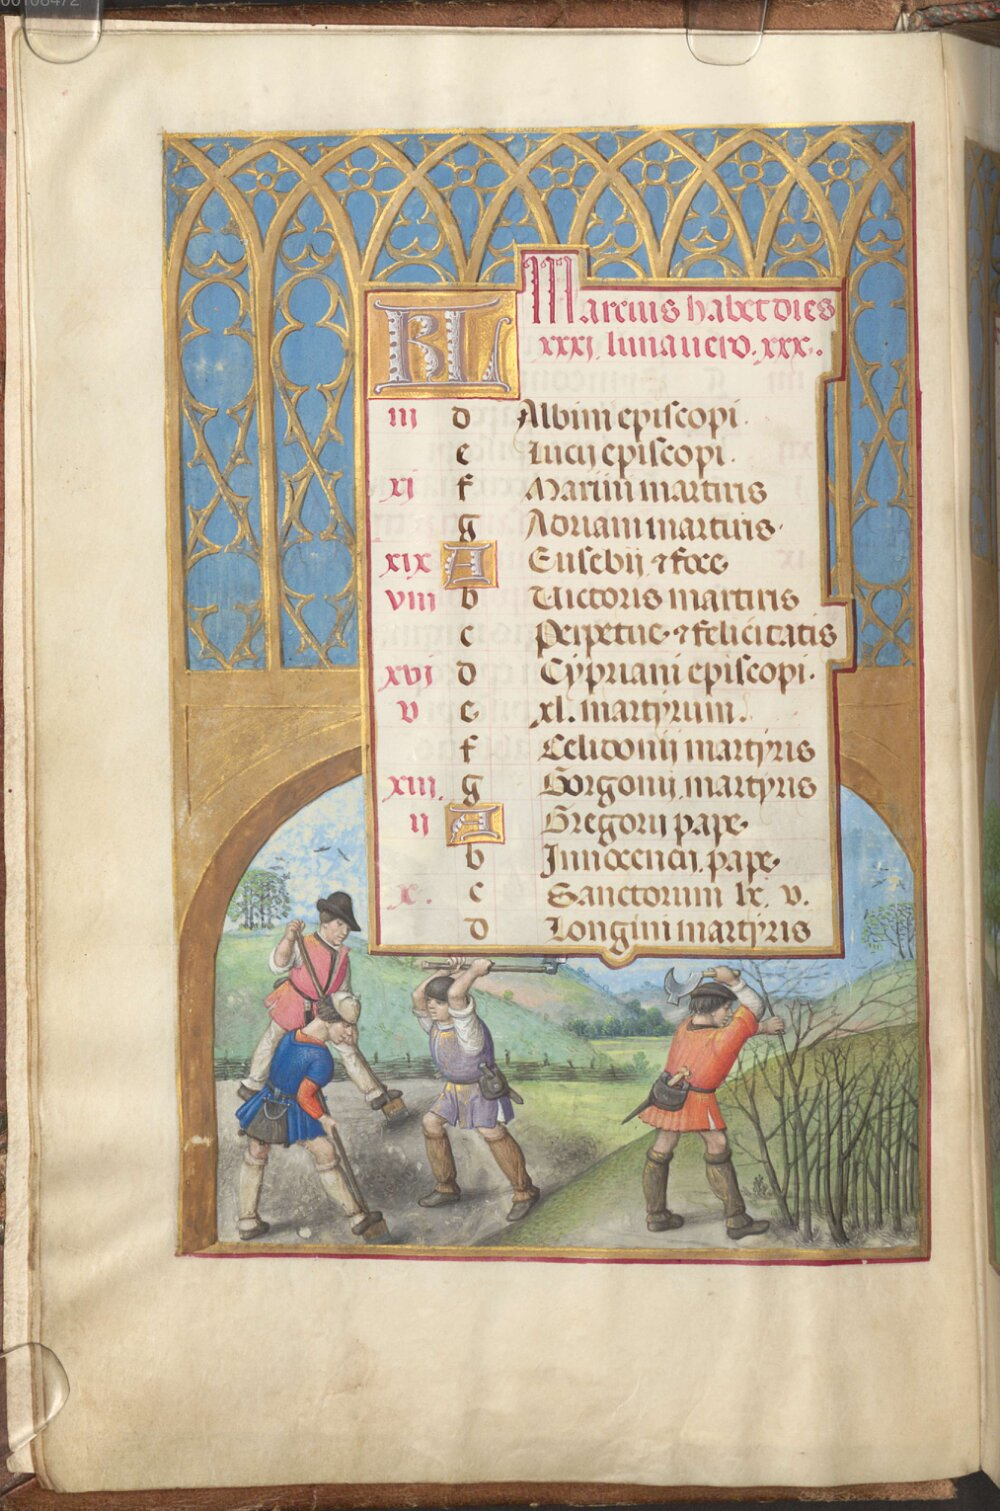 KL Marcius habet dies
xxxj. luna vero. xxx.
iii d Albini episcopi.
e Lucij episcopi.
xj f Marini martiris
g Adriani martiris.
xix A Eusebij ⁊ foce
viii b Victoris martiris
c Perpetue. ⁊ felicitatis
xvj d Cypriani episcopi.
v e xl. martyrum.
f Celidonij martyris
xiii. g Gorgonij martyris
ij A Gregorij pape
b Innocencij. pape
x. c Sanctorum lx. v.
d Longini martyris